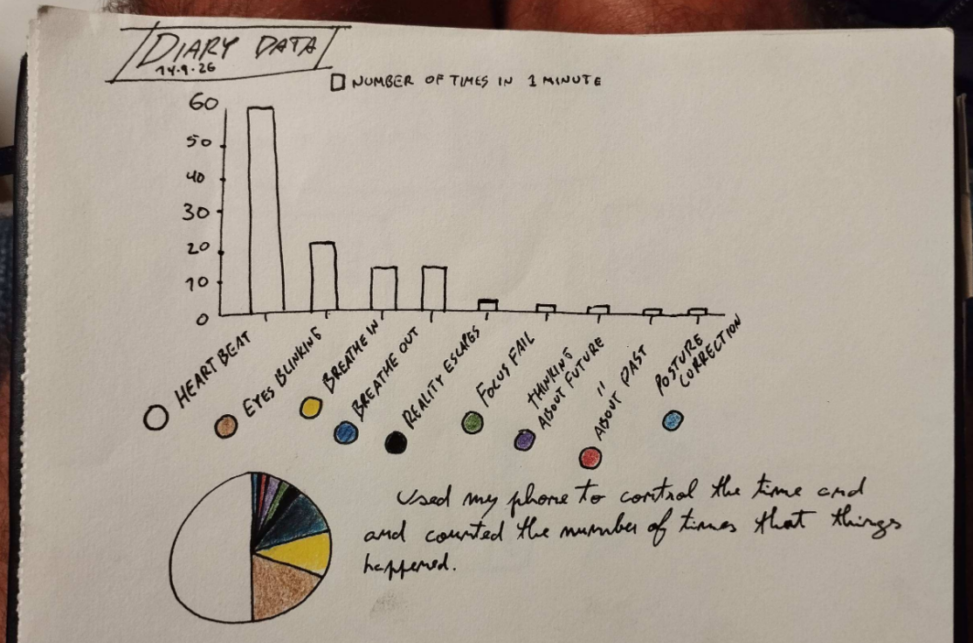 DIARY DATA
14.9.26
NUMBER OF TIMES IN 1 MINUTE
60
50
40
30
20
10
0
HEART BEAT
EYES BLINKING
BREATHE IN
BREATHE OUT
REALITY ESCAPES
FOCUS FAIL
THINKING
ABOUT FUTURE
"
ABOUT PAST
POSTURE
CORRECTION
Used my phone to control the time and
and counted the number of times that things
happened.